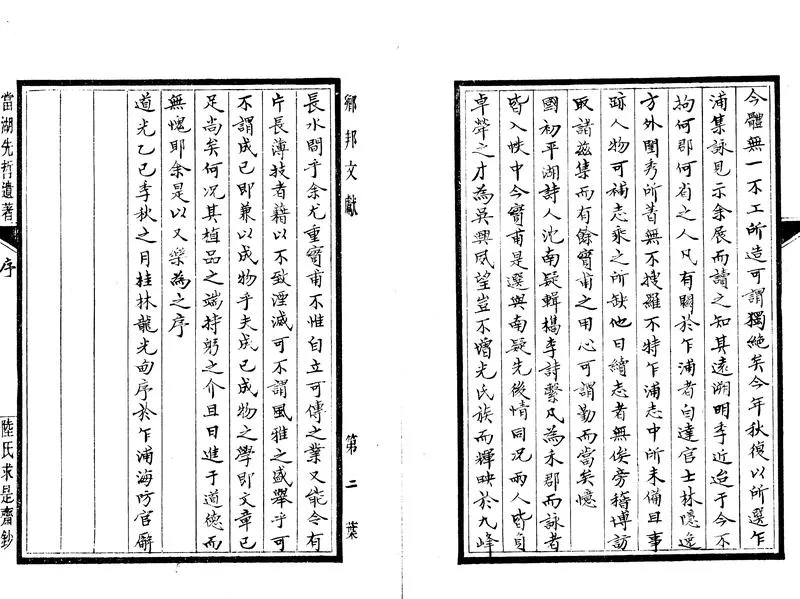 今體無一不工所造可謂獨絕矣今年秋復以所選乍
浦集詠見示余展而讀之知其遠溯明季近迨于今不
拘何郡何省之人凡有關於乍浦者自達官士林隱逸
方外閨秀所著無不搜羅不特乍浦志中所未備且事
跡人物可補志乘之所缺他日續志者無俟旁稽博訪
取諸茲集而有餘寶甫之用心可謂勤而當矣憶
國初平湖詩人沈南疑輯檇李詩繫凡為本郡而詠者
皆入帙中今寶甫是選與南疑先後情同況兩人皆負
卓犖之才為吳興風望豈不增光氏族而輝映於九峰
鄉邦文獻
第二葉
長水間乎余尤重寶甫不惟自立可傳之業又能令有
片長薄技者藉以不致湮滅可不謂風雅之盛舉乎可
不謂成己即兼以成物乎夫成己成物之學即文章已
足尚矣何況其植品之端持躬之介且日進于道德而
無愧耶余是以又樂為之序
道光乙巳季秋之月桂林龍光甸序於乍浦海防官廨
當湖先哲遺著
序
陸氏求是齋鈔